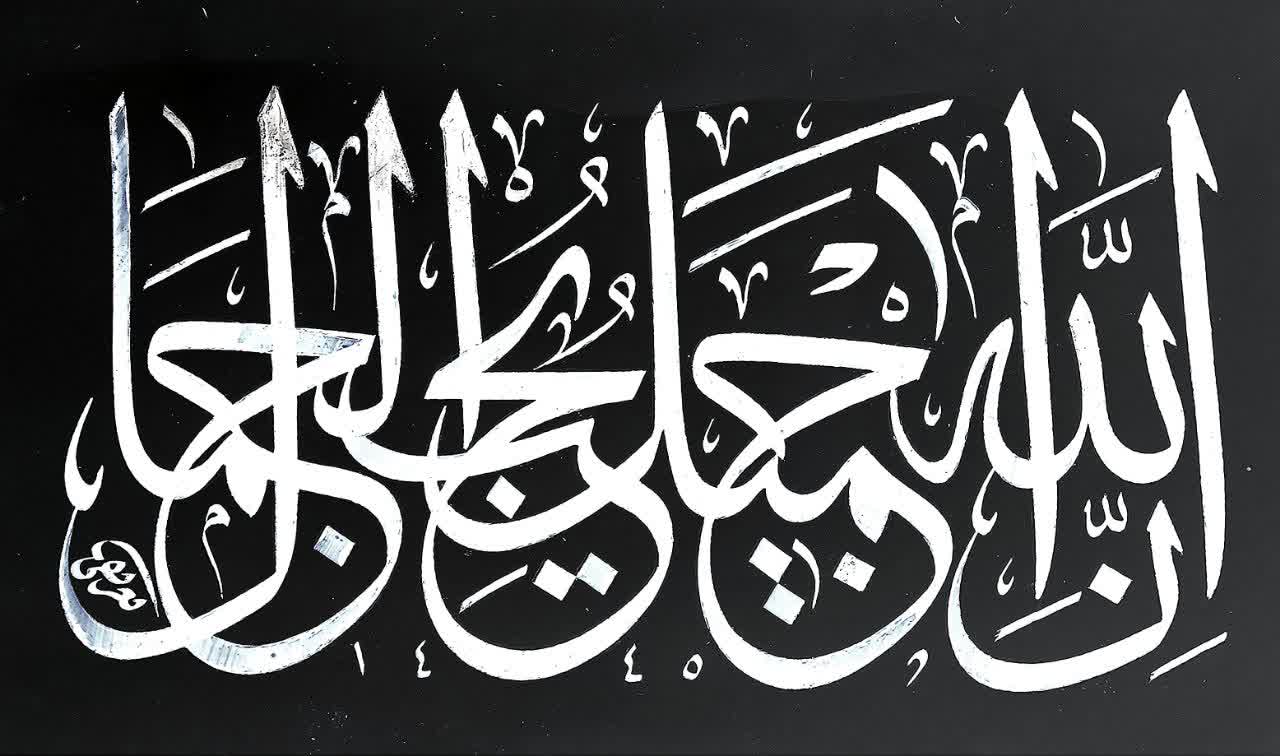 إِنَّ اللّٰهَ جَمِيلٌ يُحِبُّ الْجَمَالَ
١٤٤٥